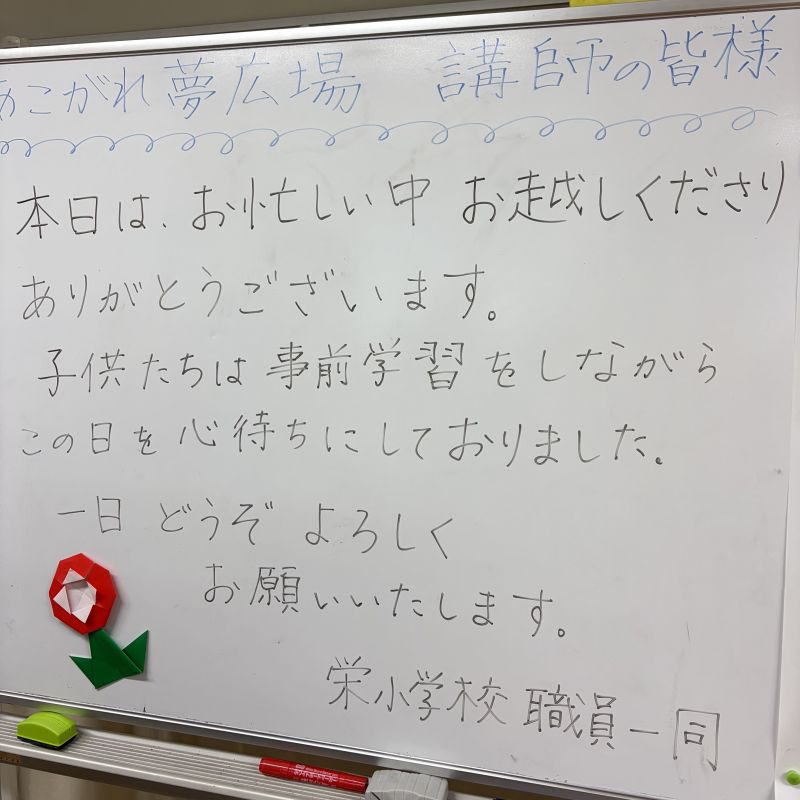 あこがれ夢広場　講師の皆様
本日は、お忙しい中 お越しくださり
ありがとうございます。
子供たちは事前学習をしながら
この日を心待ちにしておりました。
一日 どうぞ よろしく
お願いいたします。
栄小学校 職員一同